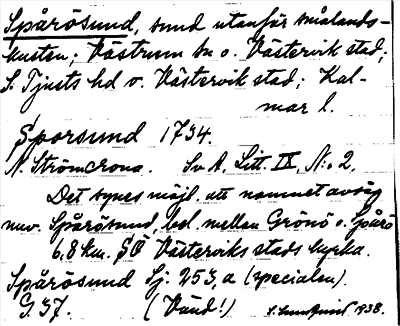 Spårösund, sund utanför smålands-
kusten; Västrum sn o. Västervik stad;
S. Tjusts hd o. Västervik stad; Kal-
mar l.
Sporsund 1734.
N. Strömcrona. Sv. A. Litt. IX, N:o 2.
Det synes möjl. att namnet avsåg
nuv. Spårösund, bel. mellan Grönö o. Spårö
6,8 km. SÖ Västerviks stads kyrka.
Spårösund Sj. 253, a (specialen).
G. 37. (Vänd!) 1938.